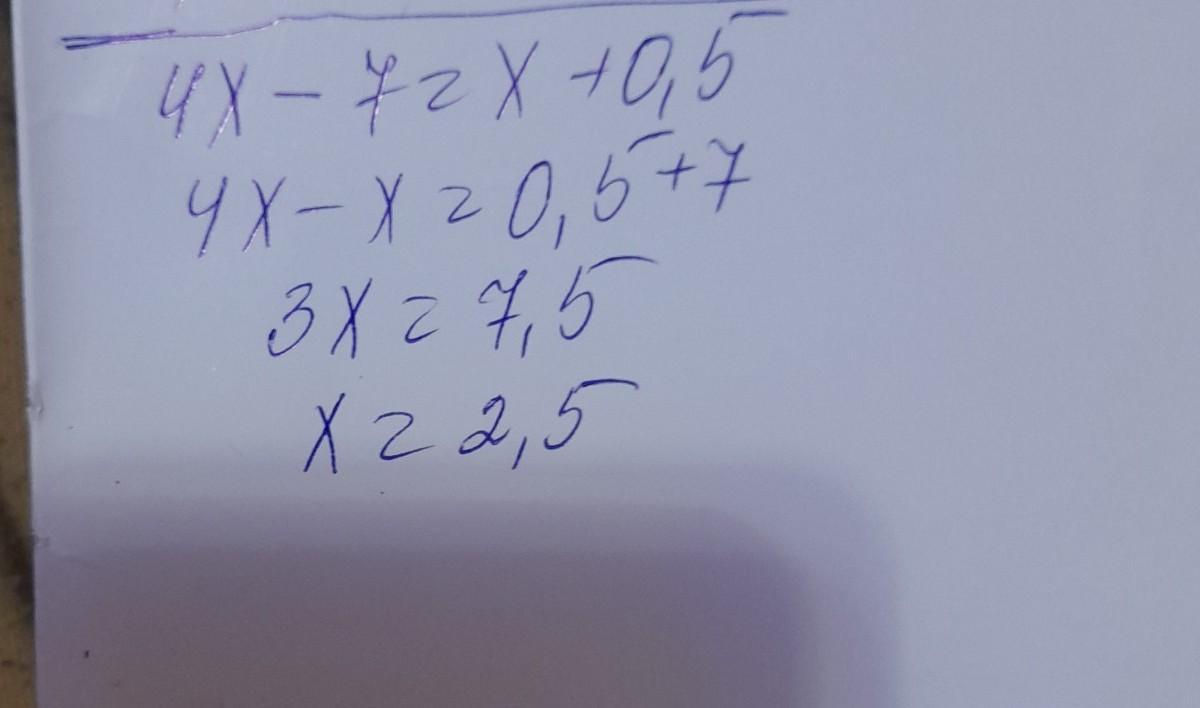 4x - 7 = x + 0,5
4x - x = 0,5 + 7
3x = 7,5
x = 2,5